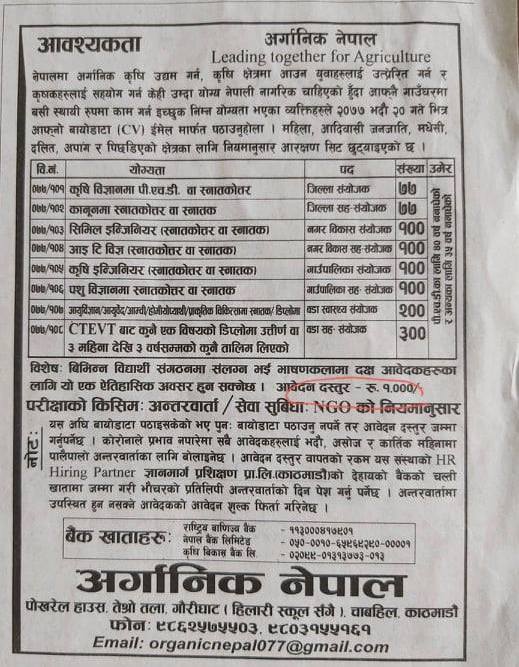 आवश्यकता
अर्गानिक नेपाल
Leading together for Agriculture
नेपालमा अर्गानिक कृषि उद्यम गर्न, कृषि क्षेत्रमा आउन युवाहरुलाई उत्प्रेरित गर्न र
कृषकहरुलाई सहयोग गर्न केही उम्दा योग्य नेपाली नागरिक चाहिएको हुँदा आफ्नै गाउँघरमा
बसी स्थायी रुपमा काम गर्न इच्छुक निम्न योग्यता भएका व्यक्तिहरुले २०७७ भदौ २० गते भित्र
आफ्नो बायोडाटा (CV) ईमेल मार्फत पठाउनुहोला । महिला, आदिवासी जनजाति, मधेसी,
दलित, अपांग र पिछडिएको क्षेत्रका लागि नियमानुसार आरक्षण सिट छुट्याइएको छ ।
वि.नं. योग्यता पद संख्या उमेर
०७७/१०१ कृषि विज्ञानमा पी.एच.डी. वा स्नातकोत्तर जिल्ला संयोजक ७७
०७७/१०२ कानूनमा स्नातकोत्तर वा स्नातक जिल्ला सह-संयोजक ७७
०७७/१०३ सिभिल इन्जिनियर (स्नातकोत्तर वा स्नातक) नगर विकास संयोजक १००
०७७/१०४ आइ टि विज्ञ (स्नातकोत्तर वा स्नातक) नगर विकास सह संयोजक १००
०७७/१०५ कृषि इन्जिनियर (स्नातकोत्तर वा स्नातक) गाउँपालिका संयोजक १००
०७७/१०६ पशु विज्ञानमा स्नातकोत्तर वा स्नातक गाउँपालिका सह-संयोजक १००
०७७/१०७ आयुर्विज्ञान/आयुर्वेद/आम्ची/होमीयोप्याथी/प्राकृतिक चिकित्सामा स्नातक/डिप्लोमा वडा स्वास्थ्य संयोजक २००
०७७/१०८ CTEVT बाट कुनै एक विषयको डिप्लोमा उत्तीर्ण वा वडा सह-संयोजक ३००
३ महिना देखि ३ वर्षसम्मको कुनै तालिम लिएको
विशेषः बिभिन्न विद्यार्थी संगठनमा संलग्न भई भाषणकलामा दक्ष आवेदकहरुका
लागि यो एक ऐतिहासिक अवसर हुन सक्नेछ । आवेदन दस्तुर - रु. १,०००/-
परीक्षाको किसिमः अन्तरवार्ता/सेवा सुबिधाः NGO को नियमानुसार
नोटः
यस अघि बायोडाटा पठाइसकेको भए पुनः बायोडाटा पठाउनु नपर्ने तर आवेदन दस्तुर जम्मा
गर्नुपर्नेछ । कोरोनाले प्रभाव नपारेमा सबै आवेदकहरुलाई भदौ, असोज र कार्तिक महिनामा
पालैपालो अन्तरवार्ताका लागि बोलाइनेछ । आवेदन दस्तुर वापतको रकम यस संस्थाको HR
Hiring Partner ज्ञानमार्ग प्रशिक्षण प्रा.लि.(काठमाडौं) को देहायको बैंकको चल्ती
खातामा जम्मा गरी भौचरको प्रतिलिपी अन्तरवार्ताको दिन पेश गर्नु पर्नेछ । अन्तरवार्तामा
उपस्थित हुन नसक्ने आवेदकको आवेदन शुल्क फिर्ता गरिनेछ ।
बैंक खाताहरुः
राष्ट्रिय बाणिज्य बैंक - ११३०००४१७९०१
नेपाल बैंक लिमिटेड - ०५०-००१०-६५९६२९०-००००१
कृषि बिकास बैंक लि. - ०२०९९-०१३१३७७३-०१३
अर्गानिक नेपाल
पोखरेल हाउस, तेश्रो तला, गौरीघाट ( हिलारी स्कूल संगै ), चाबहिल, काठमाडौं
फोनः ९८६२५७५५०३, ९८०३१५५१६१
Email: organicnepal077@gmail.com